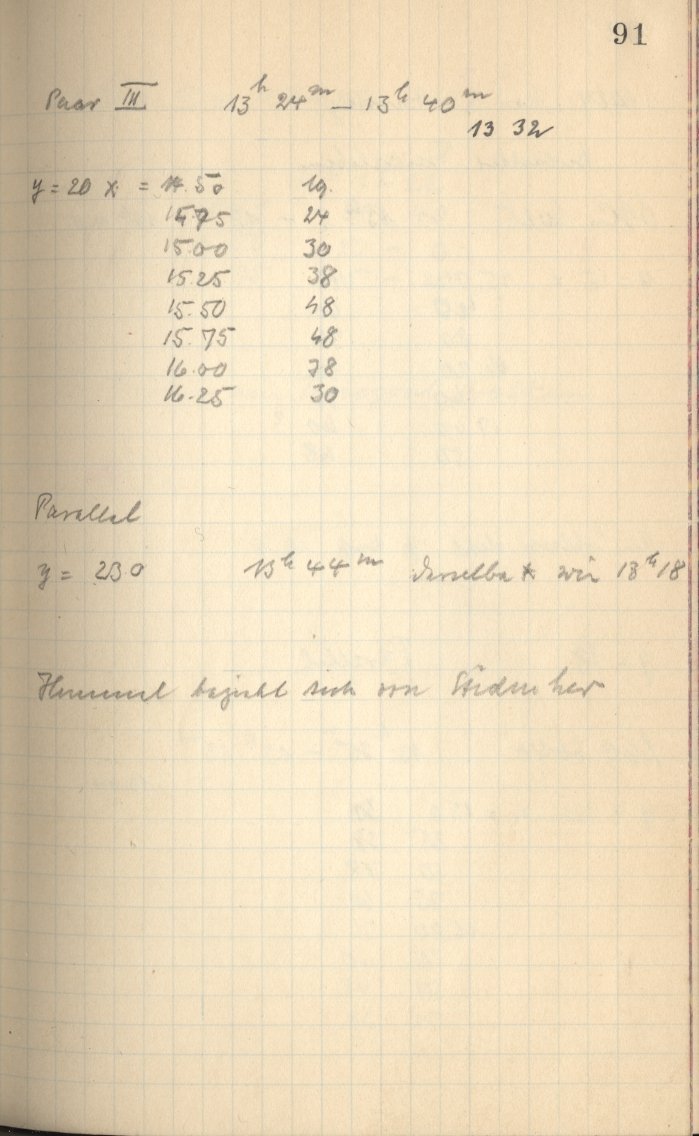 91
Paar III 13h 24m – 13h 40m
13 32
y = 20 x = 14.50 19.
14.75 24
15.00 30
15.25 38
15.50 48
15.75 48
16.00 78
16.25 30
Parallel
y = 230 13h 44m derselbe * wie 13h 18
Himmel bezieht sich von Süden her